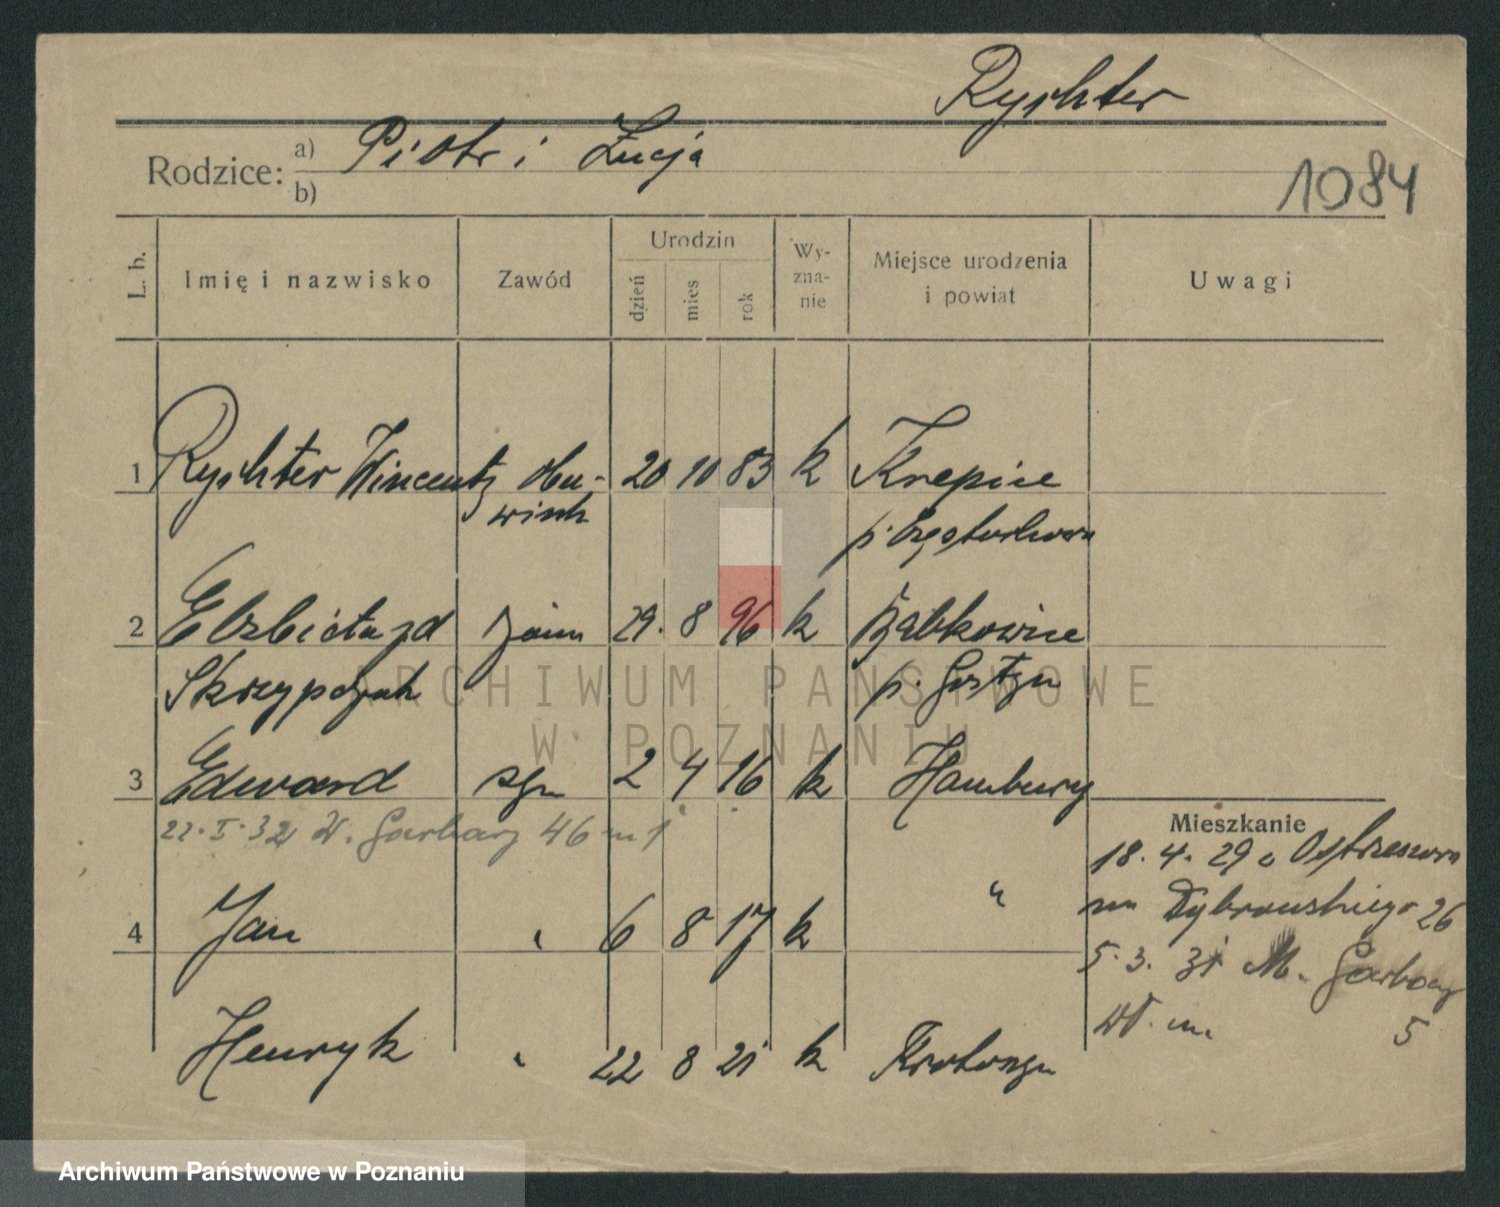 Rychter
Rodzice: a) Piotr i Łucja
b)
1084
L. b.
Imię i nazwisko
Zawód
Urodzin
dzień
mies
rok
Wy-
zna-
nie
Miejsce urodzenia
i powiat
Uwagi
1 Rychter Wincenty obu- 20 10 83 k Krepice
p. Częstochowa
2 Elżbieta zd żona 29. 8 96 k
Skrzypczak p. Gostyn
3 Edward syn 2 4 16 k Hamburg
22. I. 32 W. Garbary 46 m 1
Mieszkanie
18. 4. 29 z Ostrzeszowa
na Dąbrowskiego 26
4 Jan " 6 8 17 k "
5. 3. 31 M. Garbary
5
Henryk " 22 8 21 k Krotoszyn
ARCHIWUM PAŃSTWOWE
W POZNANIU
Archiwum Państwowe w Poznaniu